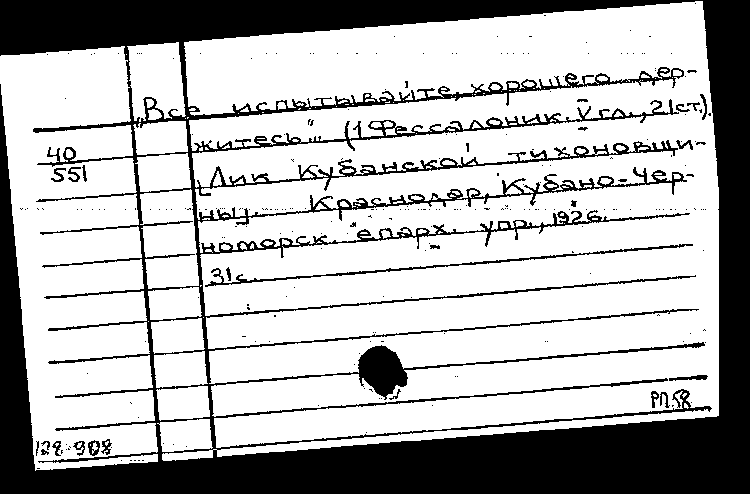 „Все испытывайте, хорошего дер-
житесь"... (1 Фессалоник. V гл., 21 ст.).
40
551
Лик Кубанской тихоновщи-
ны. Краснодар, Кубано-Чер-
номорск. епарх. упр., 1926.
31 с.
РП.58
128-908